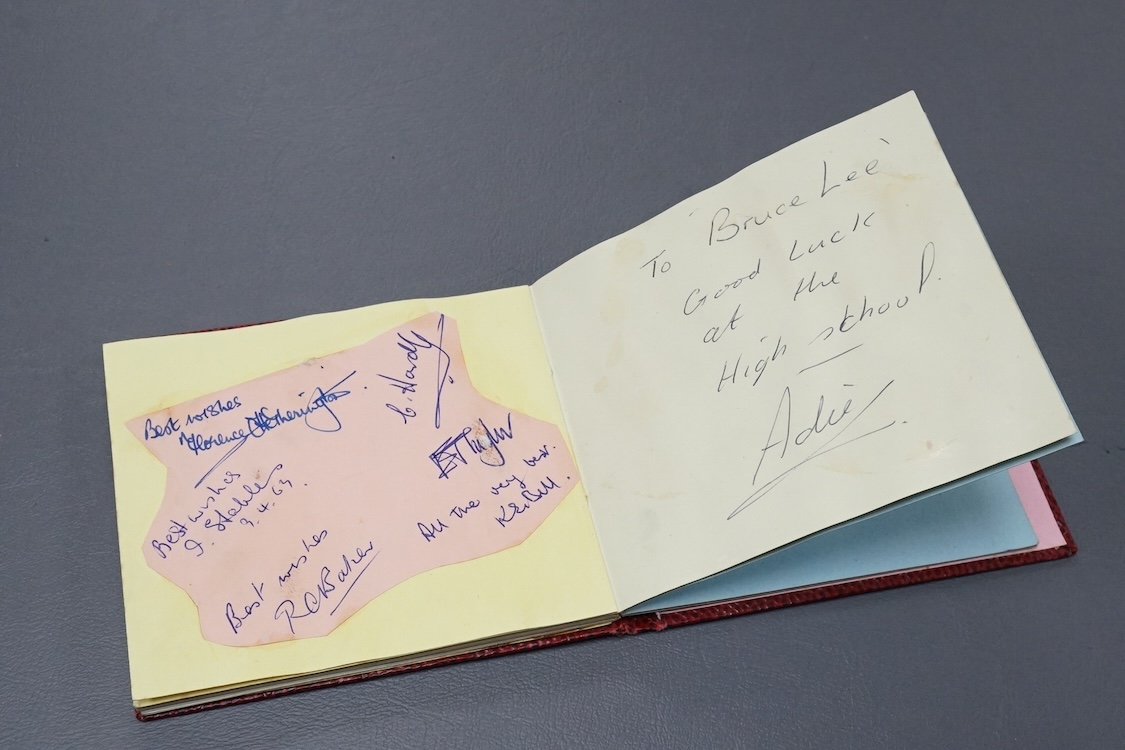 Best wishes
Florence Hetherington
C. Hardy
Best wishes
J. Stables
3.4.63.
E Taylor
All the very best.
K E Bell.
Best wishes
R C Baker
To "Bruce Lee"
Good Luck
at the
High school.
Adie